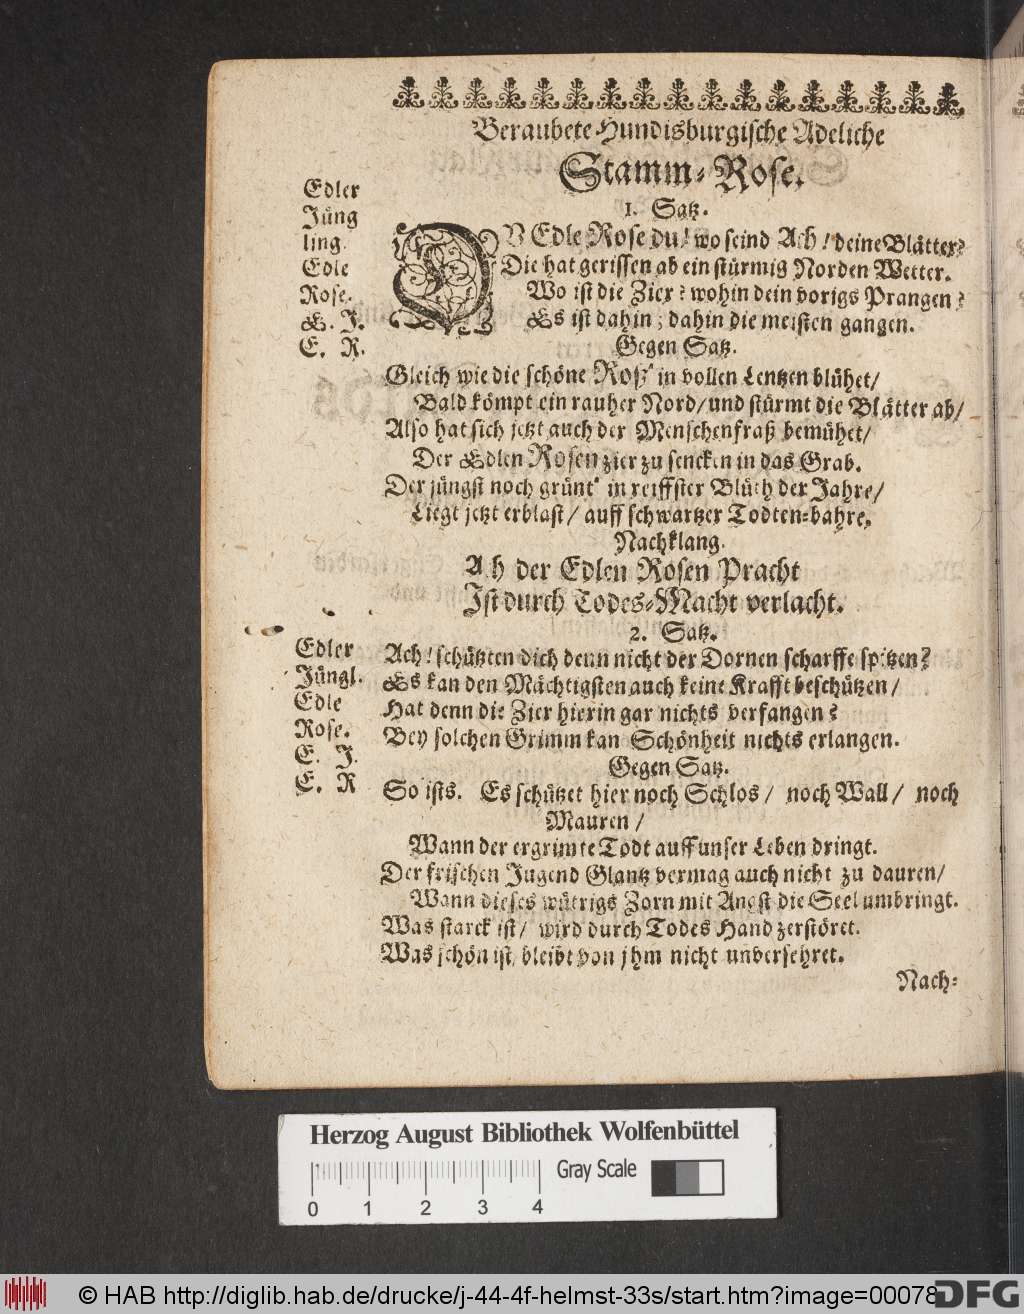 Beraubete Hundisburgische Adeliche
Stamm-Rose.
1. Satz.
Edler
Jüng
ling.
Edle
Rose.
E. J.
E. R.
DU Edle Rose du! wo seind Ach! deine Blätter?
Die hat gerissen ab ein stürmig Norden Wetter.
Wo ist die Zier? wohin dein vorigs Prangen?
Es ist dahin; dahin die meisten gangen.
Gegen Satz.
Gleich wie die schöne Roß' in vollen Lentzen blühet/
Bald kömpt ein rauher Nord/ und stürmt die Blätter ab/
Also hat sich jetzt auch der Menschenfraß bemühet/
Der Edlen Rosen zier zu sencken in das Grab.
Der jüngst noch grünt' in reiffster Blüth der Jahre/
Liegt jetzt erblast/ auff schwartzer Todten-bahre.
Nachklang.
Ach der Edlen Rosen Pracht
Ist durch Todes-Macht verlacht.
2. Satz.
Edler
Jüngl.
Edle
Rose.
E. J.
E. R
Ach! schützten dich denn nicht der Dornen scharffe spitzen?
Es kan den Mächtigsten auch keine Krafft beschützen/
Hat denn die Zier hierin gar nichts verfangen?
Bey solchen Grimm kan Schönheit nichts erlangen.
Gegen Satz.
So ists. Es schützet hier noch Schlos/ noch Wall/ noch
Mauren/
Wann der ergrimte Todt auff unser Leben dringt.
Der frischen Jugend Glantz vermag auch nicht zu dauren/
Wann dieses wütrigs Zorn mit Angst die Seel umbringt.
Was starck ist/ wird durch Todes Hand zerstöret.
Was schön ist/ bleibt von jhm nicht unversehret.
Nach-
Herzog August Bibliothek Wolfenbüttel
Gray Scale
0 1 2 3 4
© HAB http://diglib.hab.de/drucke/j-44-4f-helmst-33s/start.htm?image=00078
DFG